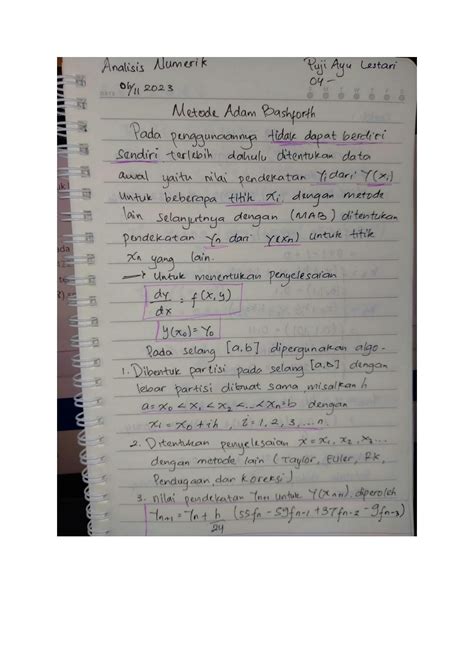 Analisis Numerik Puji Ayu Lestari
06/11 2023 04 -
Metode Adam Bashforth
Pada penggunaannya tidak dapat berdiri
sendiri terlebih dahulu ditentukan data
awal yaitu nilai pendekatan Yi dari Y(xi)
untuk beberapa titik xi, dengan metode
lain selanjutnya dengan (MAB) ditentukan
pendekatan Yn dari Y(xn) untuk titik
xn yang lain.
→ Untuk menentukan penyelesaian
dy/dx = f(x,y)
y(x0) = Y0
Pada selang [a,b] dipergunakan algo-
1. Dibentuk partisi pada selang [a,b] dengan
lebar partisi dibuat sama, misalkan h
a = x0 < x1 < x2 < ... < xn = b dengan
xi = x0 + ih, i = 1, 2, 3, ... n.
2. Ditentukan penyelesaian x = x1, x2, x3...
dengan metode lain (Taylor, Euler, RK,
Pendugaan, dan Koreksi)
3. Nilai pendekatan Yn+1 untuk diperoleh
Yn+1 = Yn + h/24 (55fn - 59fn-1 + 37fn-2 - 9fn-3)